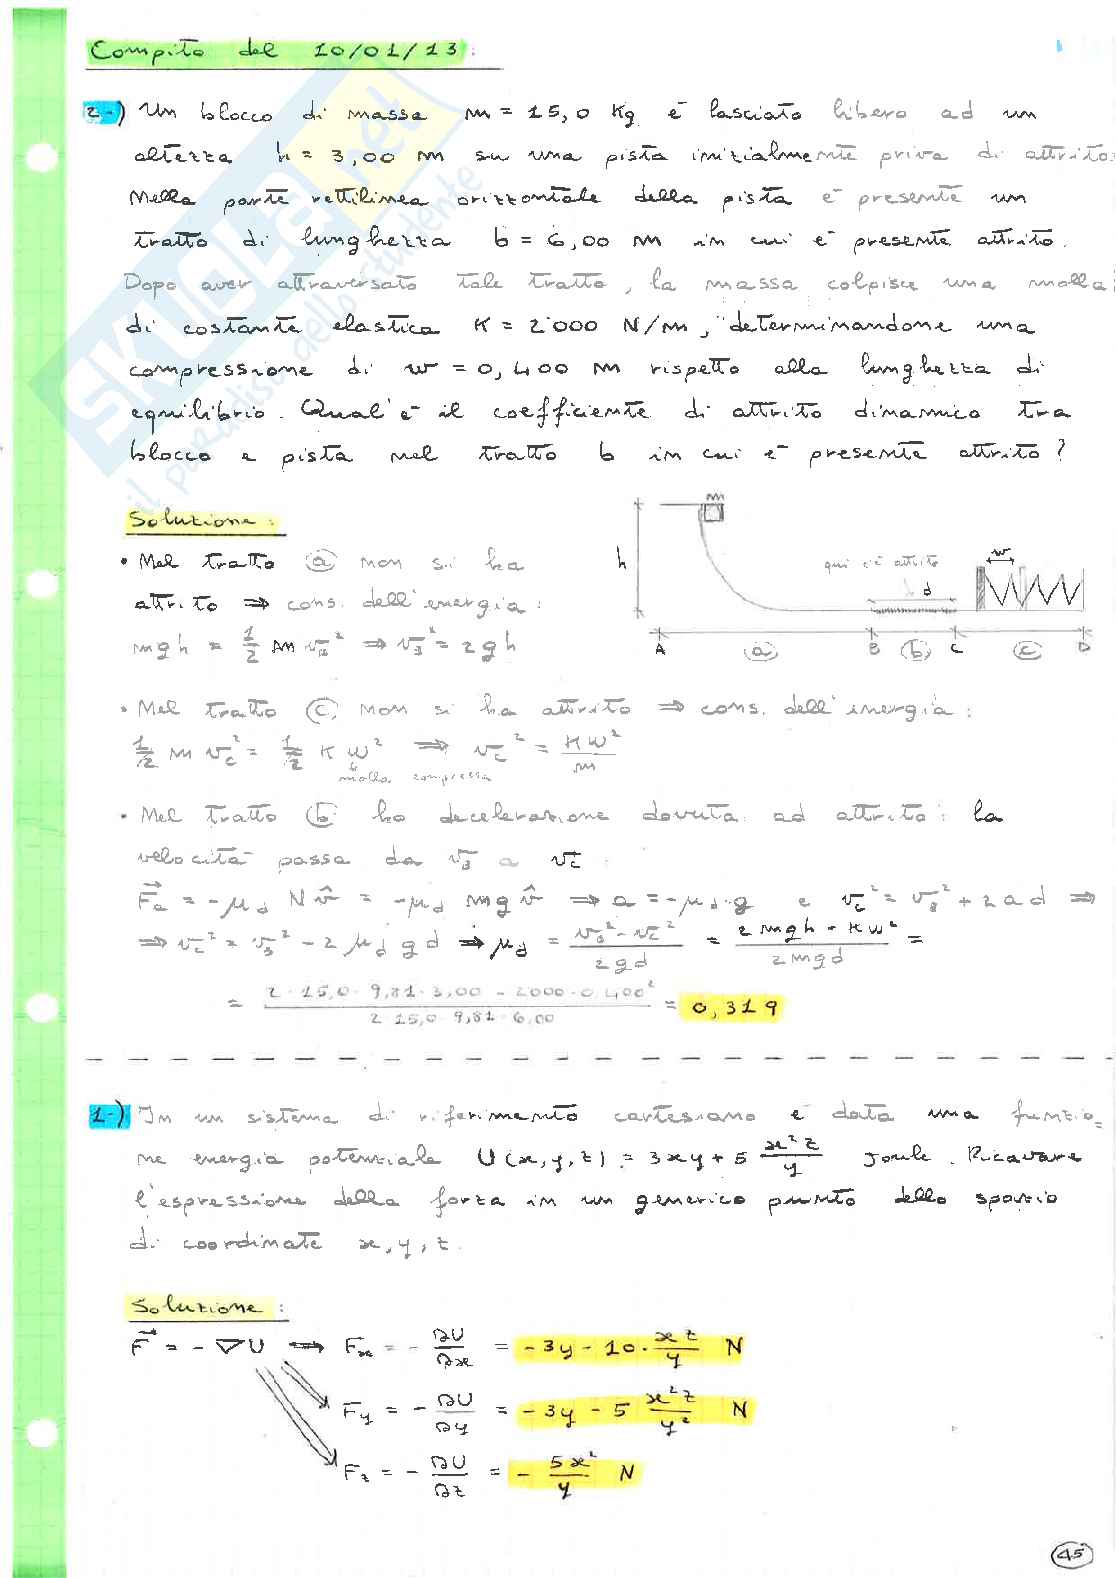 Compito del 10/01/13:
2-) Un blocco di massa m = 15,0 Kg è lasciato libero ad un
altezza h = 3,00 m su una pista inizialmente priva di attrito.
Nella parte rettilinea orizzontale della pista è presente un
tratto di lunghezza b = 6,00 m in cui è presente attrito.
Dopo aver attraversato tale tratto, la massa colpisce una molla
di costante elastica K = 2'000 N/m, determinandone una
compressione di w = 0,400 m rispetto alla lunghezza di
equilibrio. Qual'è il coefficiente di attrito dinamico tra
blocco e pista nel tratto b in cui è presente attrito?
Soluzione:
m
h
qui c'è attrito
d
w
A (a) B (b) C (c) D
• Nel tratto (a) non si ha
attrito ⇒ cons. dell'energia:
mgh = 1/2 m v_B² ⇒ v_B² = 2gh
• Nel tratto (c) non si ha attrito ⇒ cons. dell'energia:
1/2 m v_c² = 1/2 K w² ⇒ v_c² = Kw²/m
molla compressa
• Nel tratto (b) ho decelerazione dovuta ad attrito: la
velocità passa da v_B a v_c:
F_a = -μ_d N v̂ = -μ_d mg v̂ ⇒ a = -μ_d·g e v_c² = v_B² + 2ad ⇒
⇒ v_c² = v_B² - 2 μ_d g d ⇒ μ_d = (v_B² - v_c²)/(2gd) = (2mgh - Kw²)/(2mgd) =
= (2·15,0·9,81·3,00 - 2000·0,400²)/(2·15,0·9,81·6,00) = 0,319
1-) In un sistema di riferimento cartesiano è data una funzio=
ne energia potenziale U(x,y,z) = 3xy + 5 x²z/y Joule. Ricavare
l'espressione della forza in un generico punto dello spazio
di coordinate x, y, z.
Soluzione:
F = -∇U ⇒ F_x = - ∂U/∂x = -3y - 10· xz/y N
F_y = - ∂U/∂y = -3y - 5 x²z/y² N
F_z = - ∂U/∂z = - 5x²/y N
45
SKUOLA.net
il paradiso dello studente